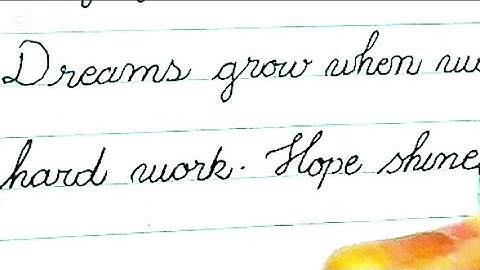 Dreams grow when
hard work. Hope shine